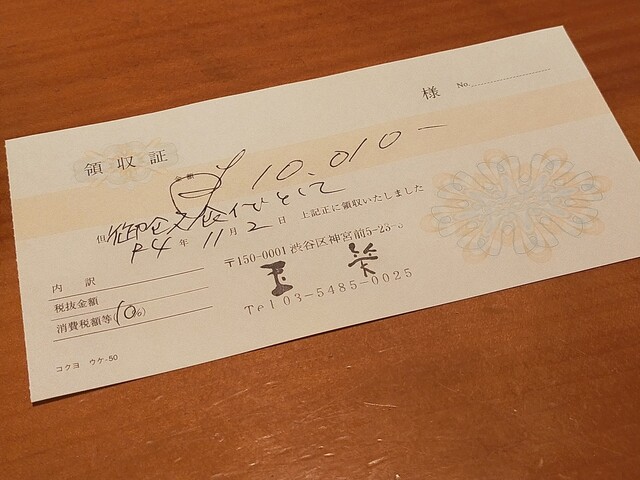 様
No.
領収証
金額
¥10,010-
但 御飲食代として
R4年11月2日 上記正に領収いたしました
内訳
税抜金額
消費税額等(10%)
〒150-0001 渋谷区神宮前5-23-
玉 栄
Tel 03-5485-0025
コクヨ ウケ-50